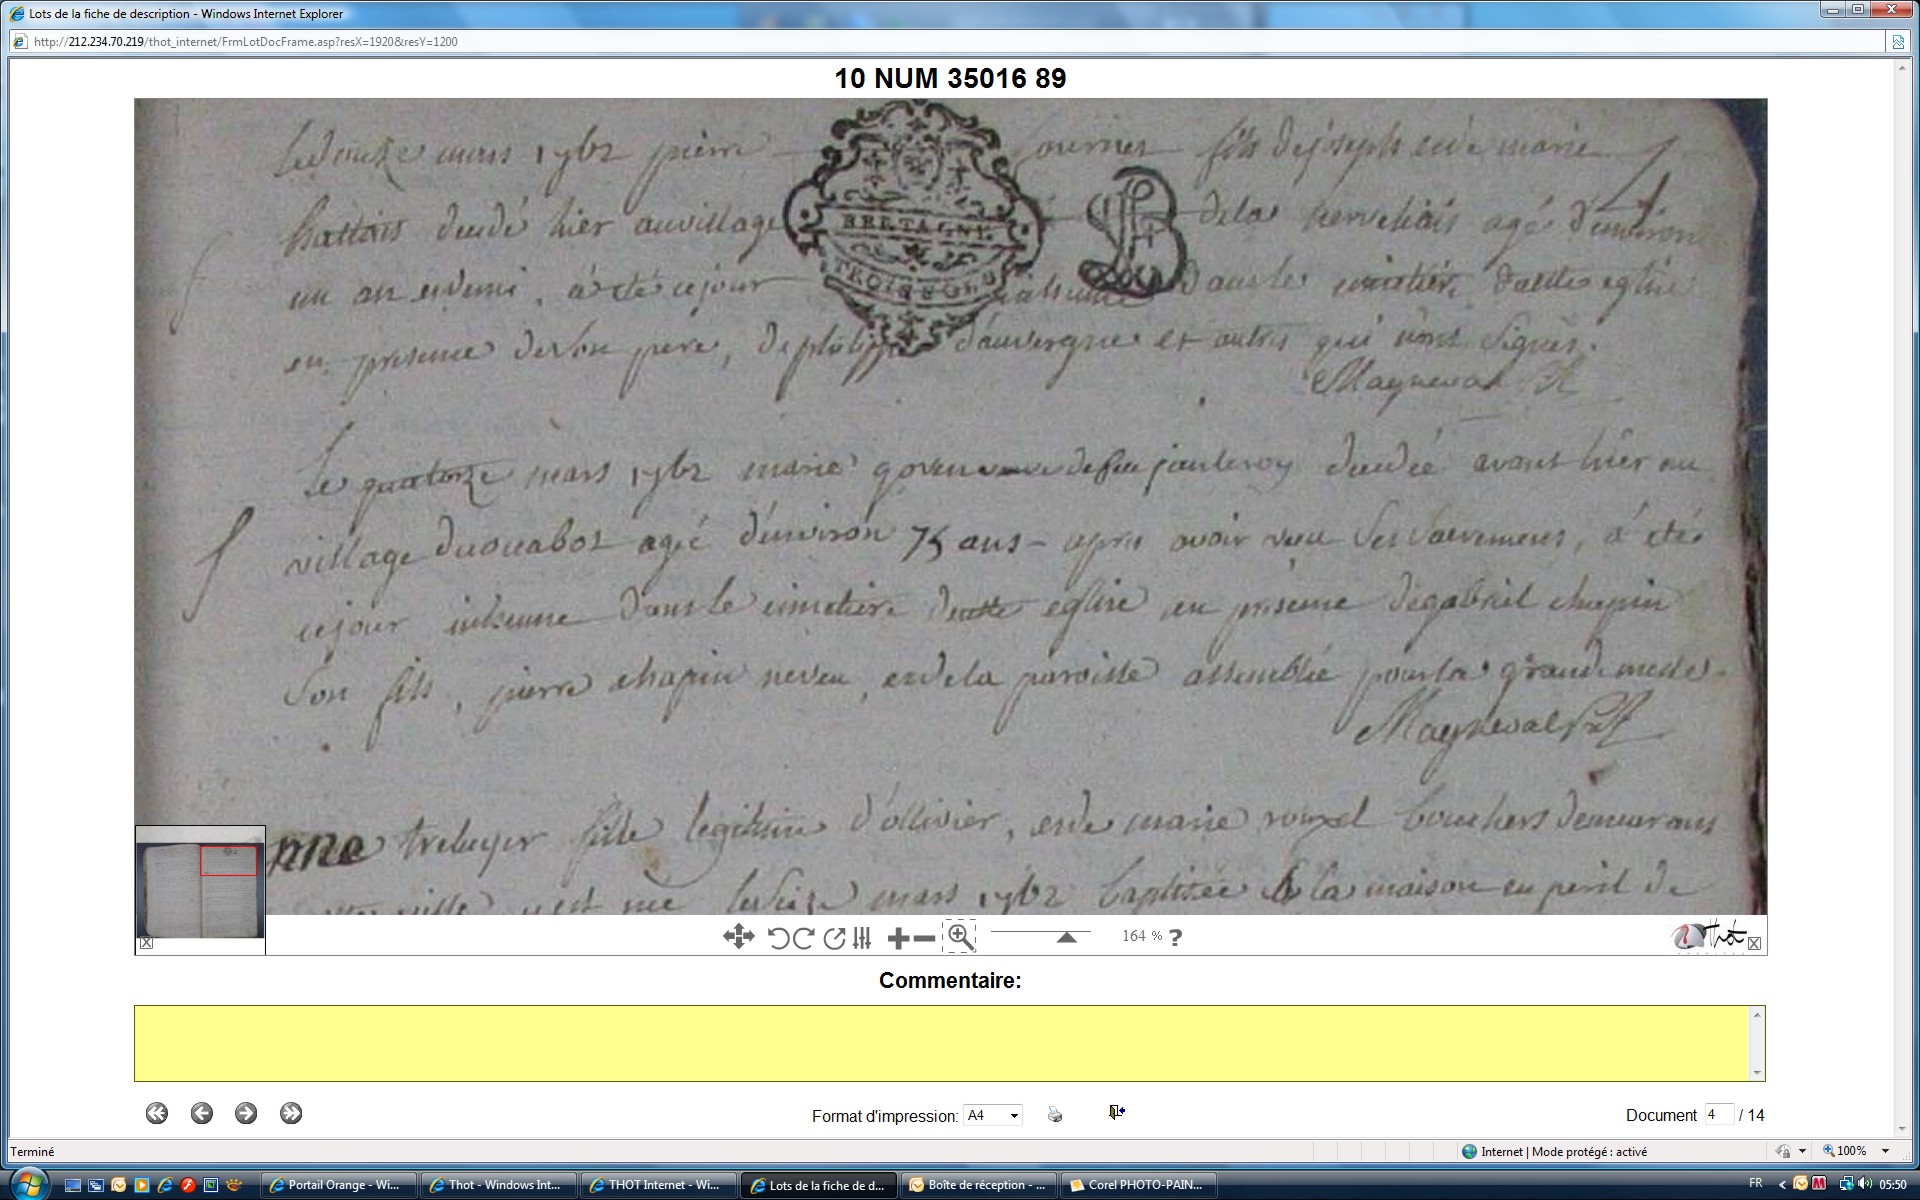 Lots de la fiche de description - Windows Internet Explorer
http://212.234.70.219/thot_internet/FrmLotDocFrame.asp?resX=1920&resY=1200
10 NUM 35016 89
le mars 1762 pierre fournier fils de joseph et de marie
decedé hier au village BRETAGNE de la agé d'environ
un an et demi, a eté ce jour TROIS SOLS inhumé dans le cimetiere de cette eglise
en presence de son pere, de philippe d'auvergne et autres qui n'ont signés.
Mayneval
4
le quatorze mars 1762 marie veuve de feu jan leroy decedée avant hier au
village agée d'environ 75 ans - apres avoir receu ses sacremens, a eté
ce jour inhumée dans le cimetiere de cette eglise en presence de gabriel chapin
son fils, pierre chapin neveu, et de la paroisse assemblée pour la grande messe.
Mayneval
nne treluyer fille legitime d'ollivier, et de marie rouxel bouchers demeurans
ville est née le seize mars 1762 baptisée à la maison en peril de
164 % ?
Thot
Commentaire:
Format d'impression: A4
Document 4 / 14
Terminé
Internet | Mode protégé : activé
100%
Portail Orange - Wi...
Thot - Windows Int...
THOT Internet - Wi...
Lots de la fiche de d...
Boîte de réception - ...
Corel PHOTO-PAIN...
FR
05:50